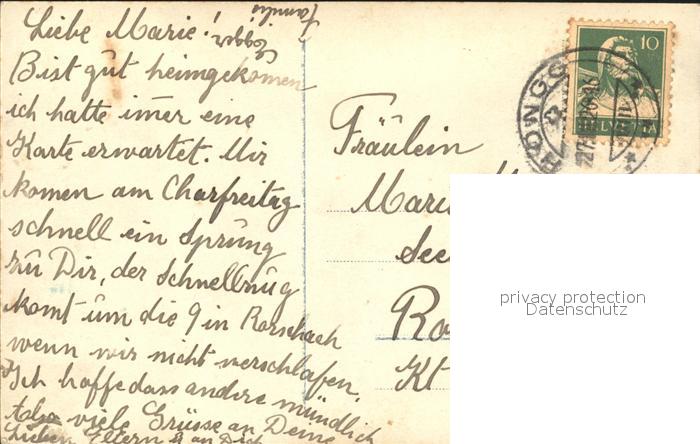 Liebe Marie!
Bist gut heimgekomen
ich hatte imer eine
Karte erwartet. Wir
komen am Charfreitag
schnell ein Sprung
zu Dir, der Schnellzug
komt um die 9 in Rorschach
wenn wir nicht verschlafen.
Ich hoffe dass andere mündlich
Also viele Grüsse an Deine
Lieben Eltern & an Dich
Familie
Fräulein
Marie
See
Ro
Kt
10
HELVETIA
HÖNGG
privacy protection
Datenschutz